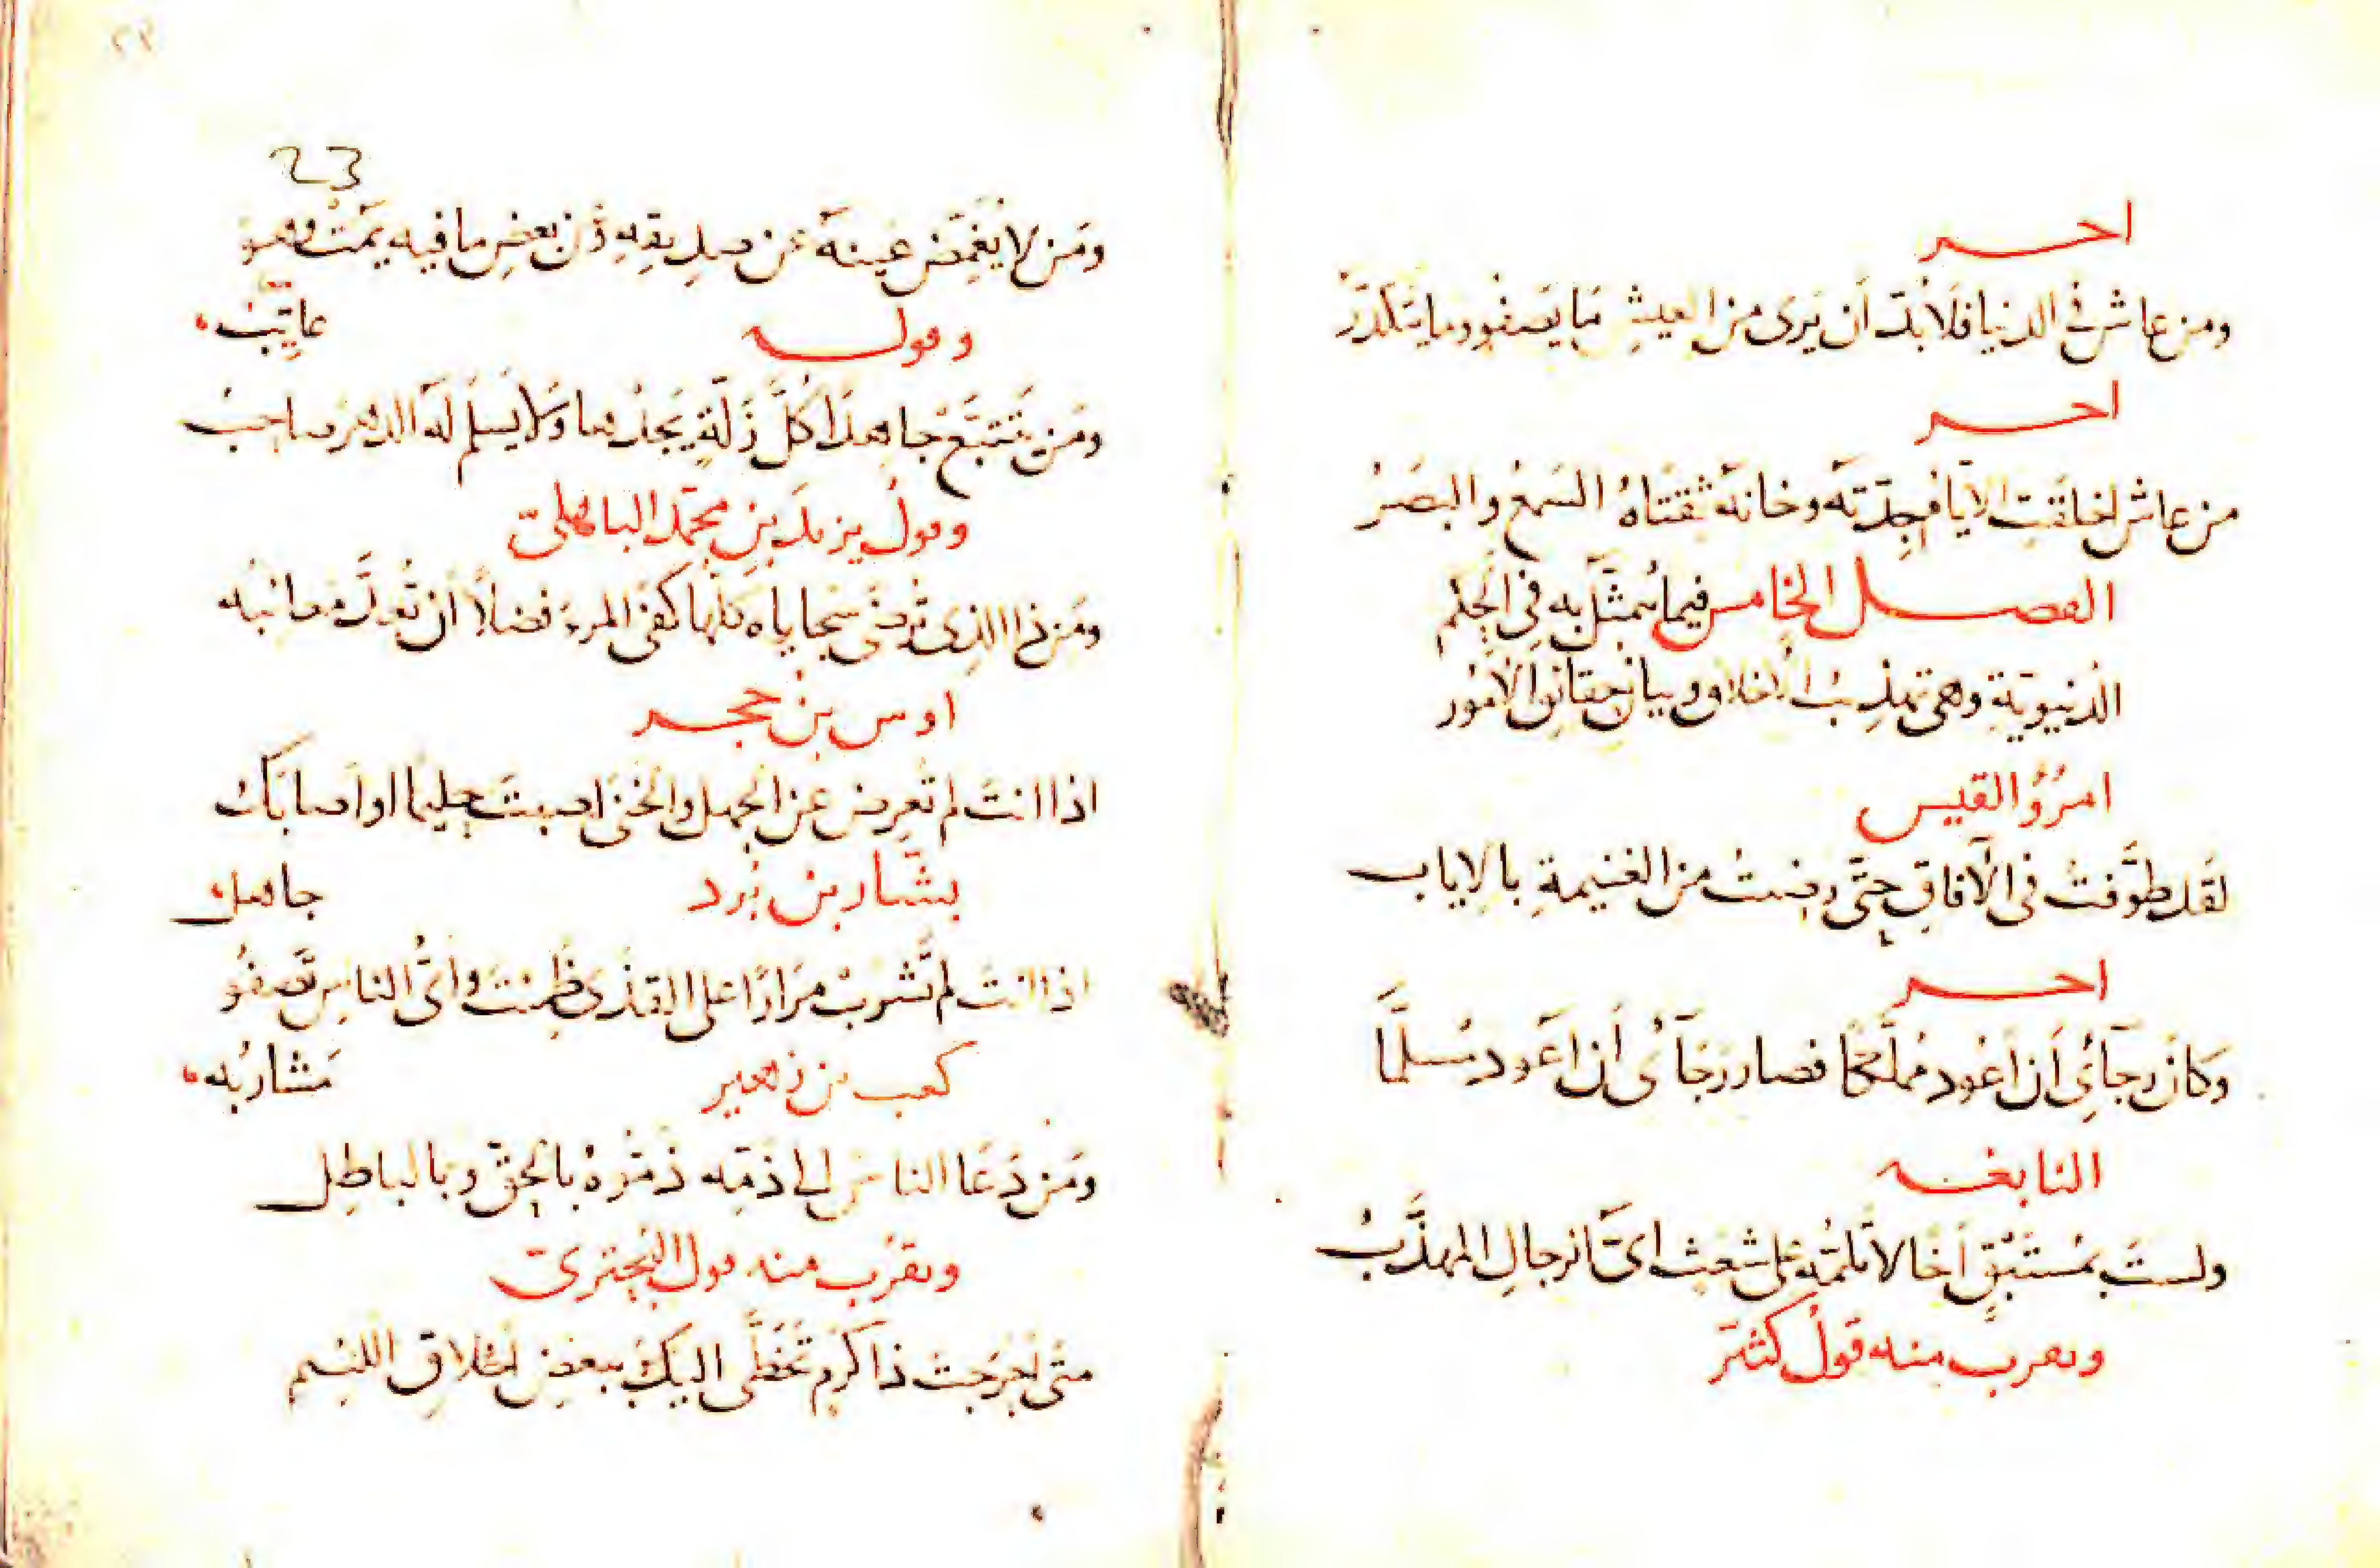 اخر
ومن عاش في الدنيا فلا بدّ أن يرى من العيش ما يصفو وما يتكدّر
اخر
من عاش اخلقت الايام جدّته وخانه ثقتاه السمع والبصر
الفصل الخامس فيما يتمثّل به في الحكم
الدنيويّة وهي تهذيب الاخلاق وبيان حقائق الامور
امرؤ القيس
لقد طوّفت في الآفاق حتّى رضيت من الغنيمة بالإياب
اخر
وكان رجآئي أن أعود مملّكا فصار رجآئي أن أعود مسلّما
النابغه
ولست بمستبق أخا لا تلمّه على شعث ايّ الرجال المهذّب
ويقرب منه قول كثيّر
٢٢
23
ومن لا يغمّض عينه عن صديقه وعن بعض ما فيه يمت وهو
عاتب
وقوله
ومن يتتبّع جاهدا كلّ زلّة يجدها ولا يسلم له الدهر صاحب
وقول يزيد بن محمّد المهلبيّ
ومن ذا الذي ترضى سجاياه كلّها كفى المرء فضلا أن تعدّ معائبه
اوس بن حجر
اذا انت لم تعرض عن الجهل والخنى اصبت حليما او اصابك
جاهل
بشّار بن برد
اذا انت لم تشرب مرارا على القذى ظمئت وايّ الناس تصفو
مشاربه
كعب بن زهير
ومن دعا الناس الى ذمّه ذمّوه بالحقّ وبالباطل
ويقرب منه قول البحتريّ
متى احرجت ذا كرم تخطّى اليك ببعض اخلاق اللئيم